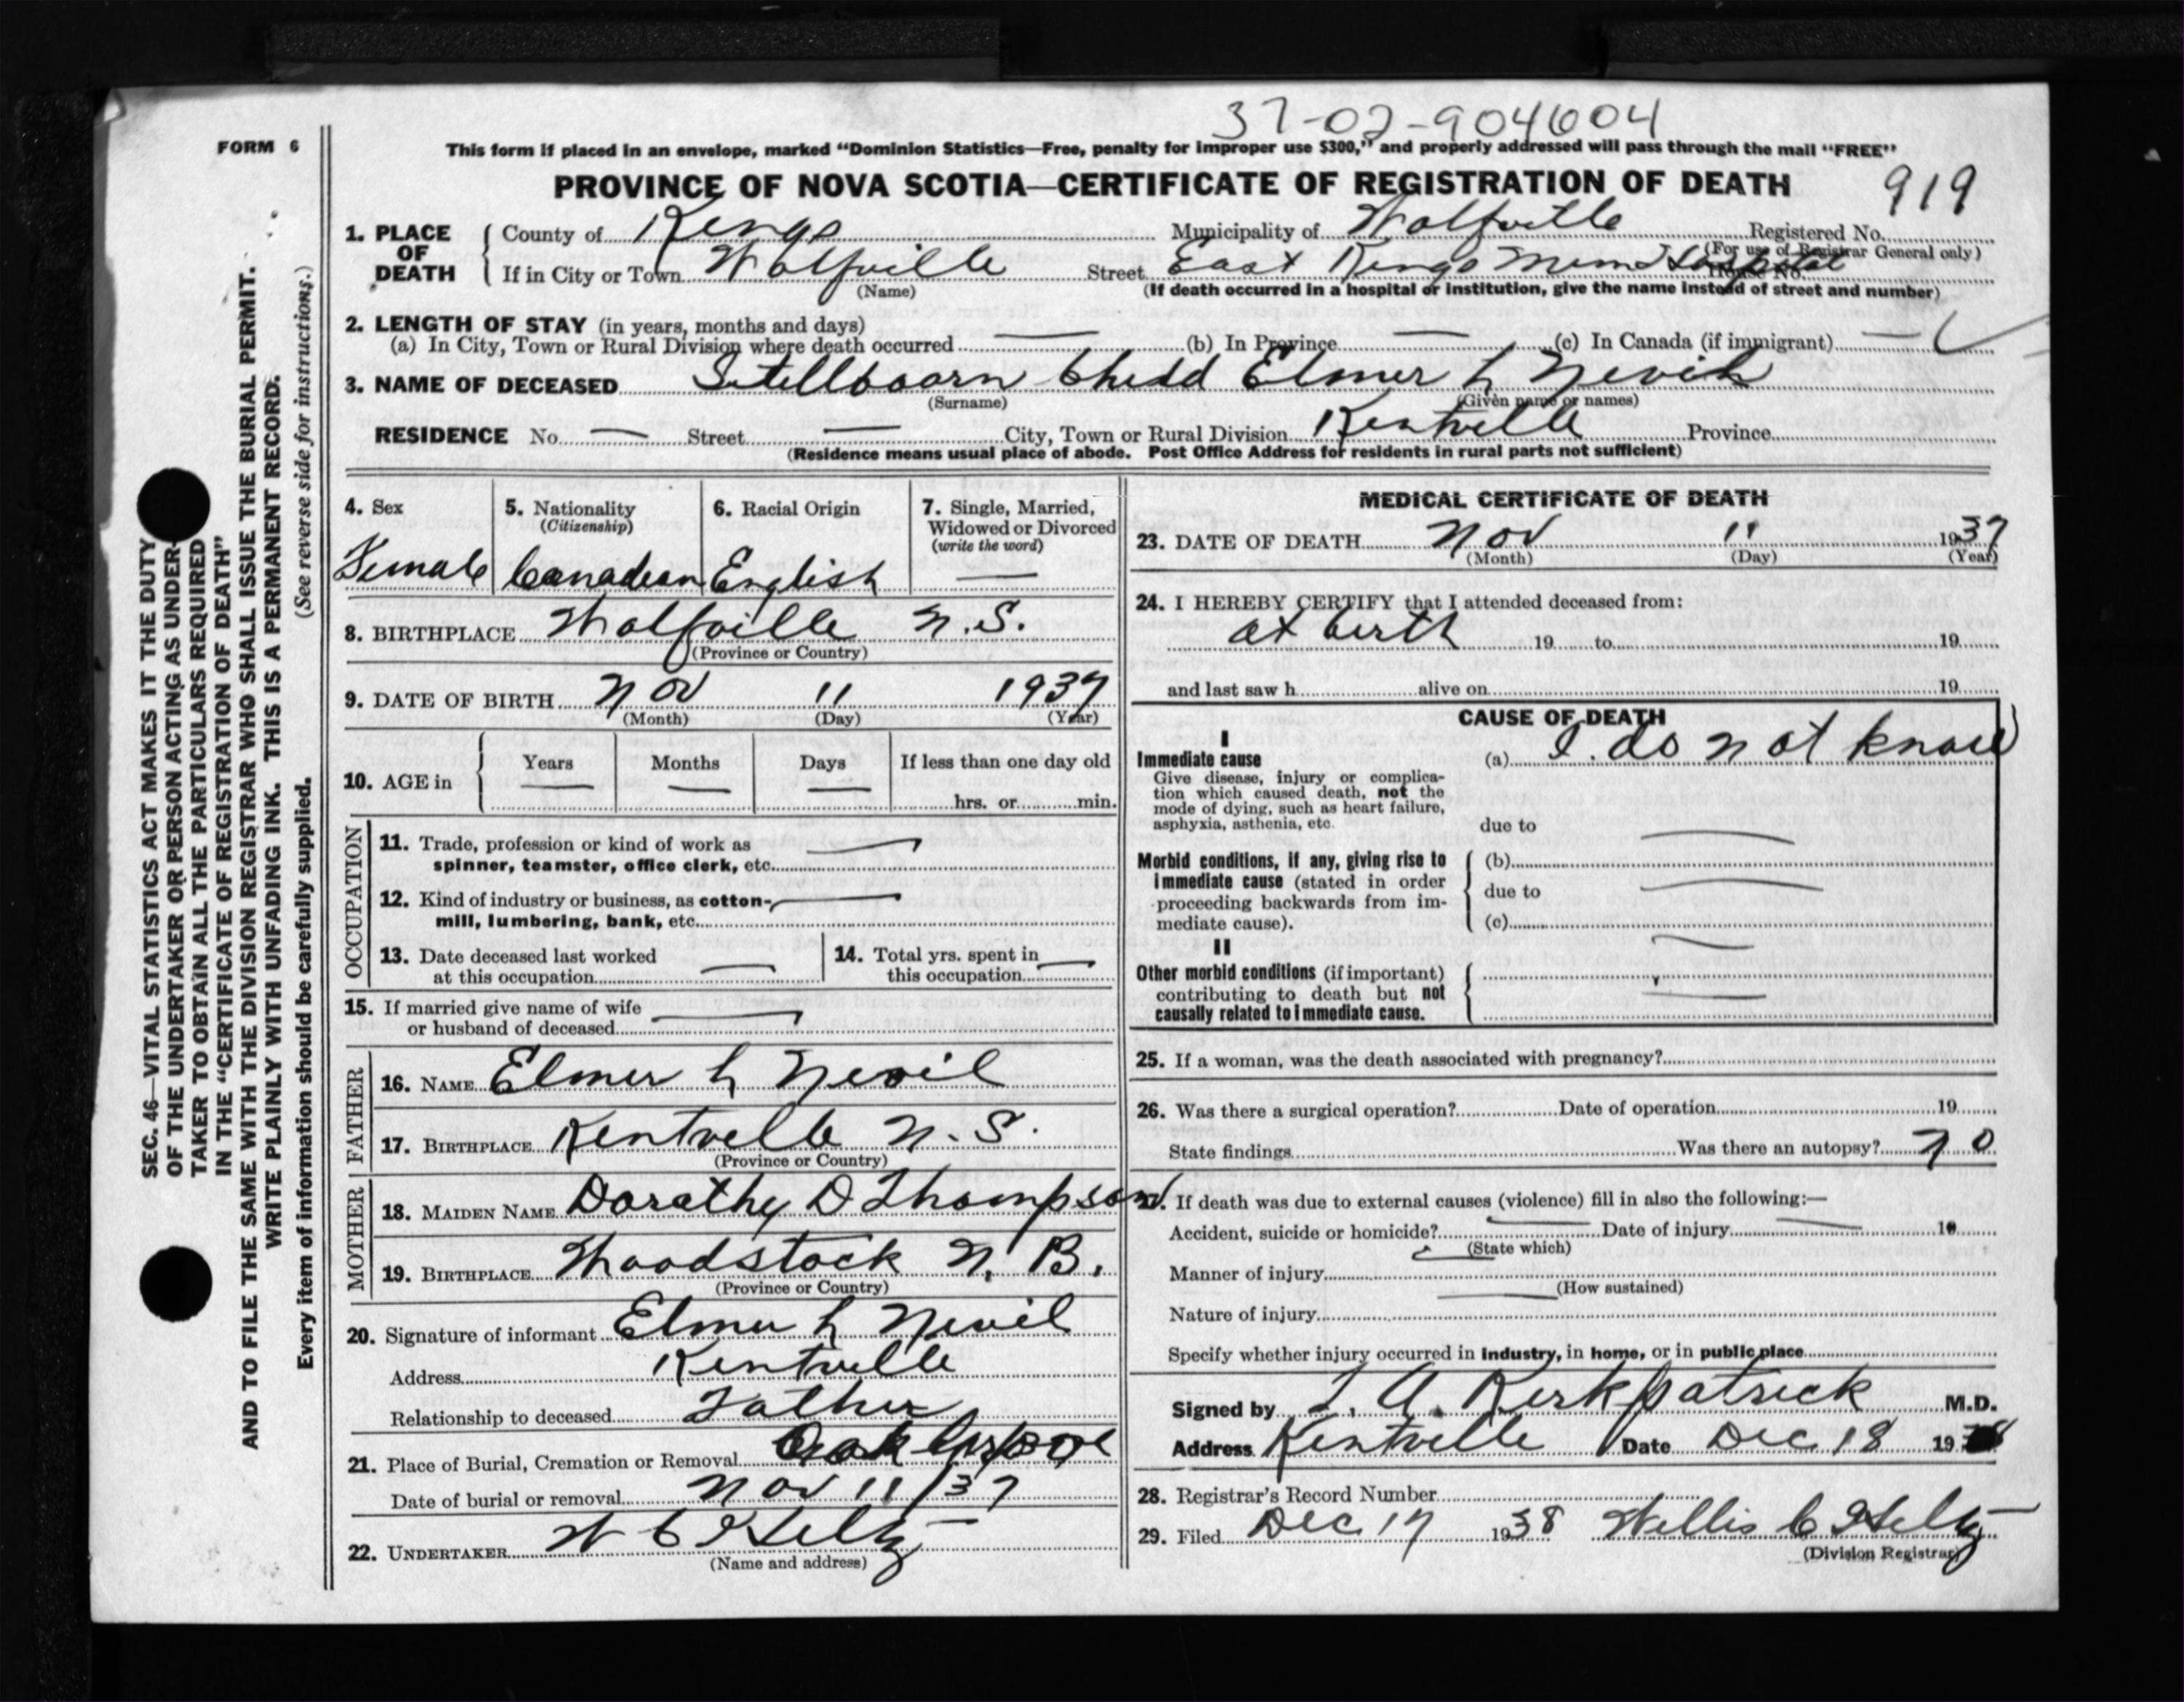 37-02-904604
FORM 6
This form if placed in an envelope, marked “Dominion Statistics—Free, penalty for improper use $300,” and properly addressed will pass through the mail “FREE”
PROVINCE OF NOVA SCOTIA—CERTIFICATE OF REGISTRATION OF DEATH
919
1. PLACE OF DEATH
County of Kings Municipality of Wolfville Registered No.
(For use of Registrar General only)
If in City or Town Wolfville Street East Kings Mem Hospital House No.
(Name) (If death occurred in a hospital or institution, give the name instead of street and number)
2. LENGTH OF STAY (in years, months and days)
(a) In City, Town or Rural Division where death occurred — (b) In Province — (c) In Canada (if immigrant) —
3. NAME OF DECEASED Stillboorn Child Elmer L Nevil
(Surname) (Given name or names)
RESIDENCE No. — Street — City, Town or Rural Division Kentville Province
(Residence means usual place of abode. Post Office Address for residents in rural parts not sufficient)
4. Sex
Female
5. Nationality
(Citizenship)
Canadian
6. Racial Origin
English
7. Single, Married,
Widowed or Divorced
(write the word)
—
8. BIRTHPLACE Wolfville N.S.
(Province or Country)
9. DATE OF BIRTH Nov 11 1937
(Month) (Day) (Year)
10. AGE in
Years Months Days If less than one day old
— — — hrs. or min.
OCCUPATION
11. Trade, profession or kind of work as —
spinner, teamster, office clerk, etc.
12. Kind of industry or business, as cotton- —
mill, lumbering, bank, etc.
13. Date deceased last worked
at this occupation —
14. Total yrs. spent in
this occupation —
15. If married give name of wife
or husband of deceased —
FATHER
16. NAME Elmer L Nevil
17. BIRTHPLACE Kentville N.S.
(Province or Country)
MOTHER
18. MAIDEN NAME Dorathy D Thompson
19. BIRTHPLACE Woodstock N. B.
(Province or Country)
20. Signature of informant Elmer L Nevil
Address Kentville
Relationship to deceased Father
21. Place of Burial, Cremation or Removal Oak Grove
Date of burial or removal Nov 11/37
22. UNDERTAKER W C Hiltz
(Name and address)
MEDICAL CERTIFICATE OF DEATH
23. DATE OF DEATH Nov 11 1937
(Month) (Day) (Year)
24. I HEREBY CERTIFY that I attended deceased from:
at birth 19 to 19
and last saw h alive on 19
CAUSE OF DEATH
I
Immediate cause (a) I do not know
Give disease, injury or complica-
tion which caused death, not the
mode of dying, such as heart failure,
asphyxia, asthenia, etc. due to —
Morbid conditions, if any, giving rise to (b)
immediate cause (stated in order
proceeding backwards from im- due to —
mediate cause). (c)
II
Other morbid conditions (if important)
contributing to death but not
causally related to immediate cause.
25. If a woman, was the death associated with pregnancy?
26. Was there a surgical operation? Date of operation 19
State findings Was there an autopsy? No
27. If death was due to external causes (violence) fill in also the following:—
Accident, suicide or homicide? — Date of injury — 19
(State which)
Manner of injury
(How sustained)
Nature of injury
Specify whether injury occurred in industry, in home, or in public place
Signed by T. A. Kirkpatrick M.D.
Address Kentville Date Dec 18 19
28. Registrar's Record Number
29. Filed Dec 17 1938 Willis C Hiltz
(Division Registrar)
SEC. 46—VITAL STATISTICS ACT MAKES IT THE DUTY
OF THE UNDERTAKER OR PERSON ACTING AS UNDER-
TAKER TO OBTAIN ALL THE PARTICULARS REQUIRED
IN THE “CERTIFICATE OF REGISTRATION OF DEATH”
AND TO FILE THE SAME WITH THE DIVISION REGISTRAR WHO SHALL ISSUE THE BURIAL PERMIT.
WRITE PLAINLY WITH UNFADING INK. THIS IS A PERMANENT RECORD.
Every item of information should be carefully supplied. (See reverse side for instructions.)